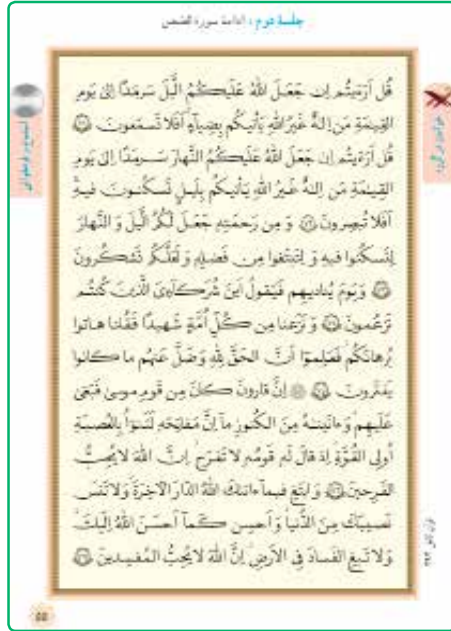 جلسهٔ دوم، ادامهٔ سورهٔ قصص
قُل اَرَءَيتُم اِن جَعَلَ اللّٰهُ عَلَيكُمُ الَّيلَ سَرمَدًا اِلىٰ يَومِ
القِيٰمَةِ مَن اِلٰهٌ غَيرُ اللّٰهِ يَأتيكُم بِضِياءٍ اَفَلا تَسمَعونَ ۝
قُل اَرَءَيتُم اِن جَعَلَ اللّٰهُ عَلَيكُمُ النَّهارَ سَرمَدًا اِلىٰ يَومِ
القِيٰمَةِ مَن اِلٰهٌ غَيرُ اللّٰهِ يَأتيكُم بِلَيلٍ تَسكُنونَ فيهِ
اَفَلا تُبصِرونَ ۝ وَ مِن رَحمَتِهٖ جَعَلَ لَكُمُ الَّيلَ وَ النَّهارَ
لِتَسكُنوا فيهِ وَ لِتَبتَغوا مِن فَضلِهٖ وَ لَعَلَّكُم تَشكُرونَ
۝ وَ يَومَ يُناديهِم فَيَقولُ اَينَ شُرَكاءِىَ الَّذينَ كُنتُم
تَزعُمونَ ۝ وَ نَزَعنا مِن كُلِّ اُمَّةٍ شَهيدًا فَقُلنا هاتوا
بُرهانَكُم فَعَلِموا اَنَّ الحَقَّ لِلّٰهِ وَ ضَلَّ عَنهُم ما كانوا
يَفتَرونَ ۝ اِنَّ قارونَ كانَ مِن قَومِ موسىٰ فَبَغىٰ
عَلَيهِم وَ ءاتَينٰهُ مِنَ الكُنوزِ ما اِنَّ مَفاتِحَهٗ لَتَنوأُ بِالعُصبَةِ
اُولِى القُوَّةِ اِذ قالَ لَهٗ قَومُهٗ لا تَفرَح اِنَّ اللّٰهَ لا يُحِبُّ
الفَرِحينَ ۝ وَ ابتَغِ فيما ءاتىٰكَ اللّٰهُ الدّارَ الاٰخِرَةَ وَ لا تَنسَ
نَصيبَكَ مِنَ الدُّنيا وَ اَحسِن كَما اَحسَنَ اللّٰهُ اِلَيكَ
وَ لا تَبغِ الفَسادَ فِى الاَرضِ اِنَّ اللّٰهَ لا يُحِبُّ المُفسِدينَ ۝